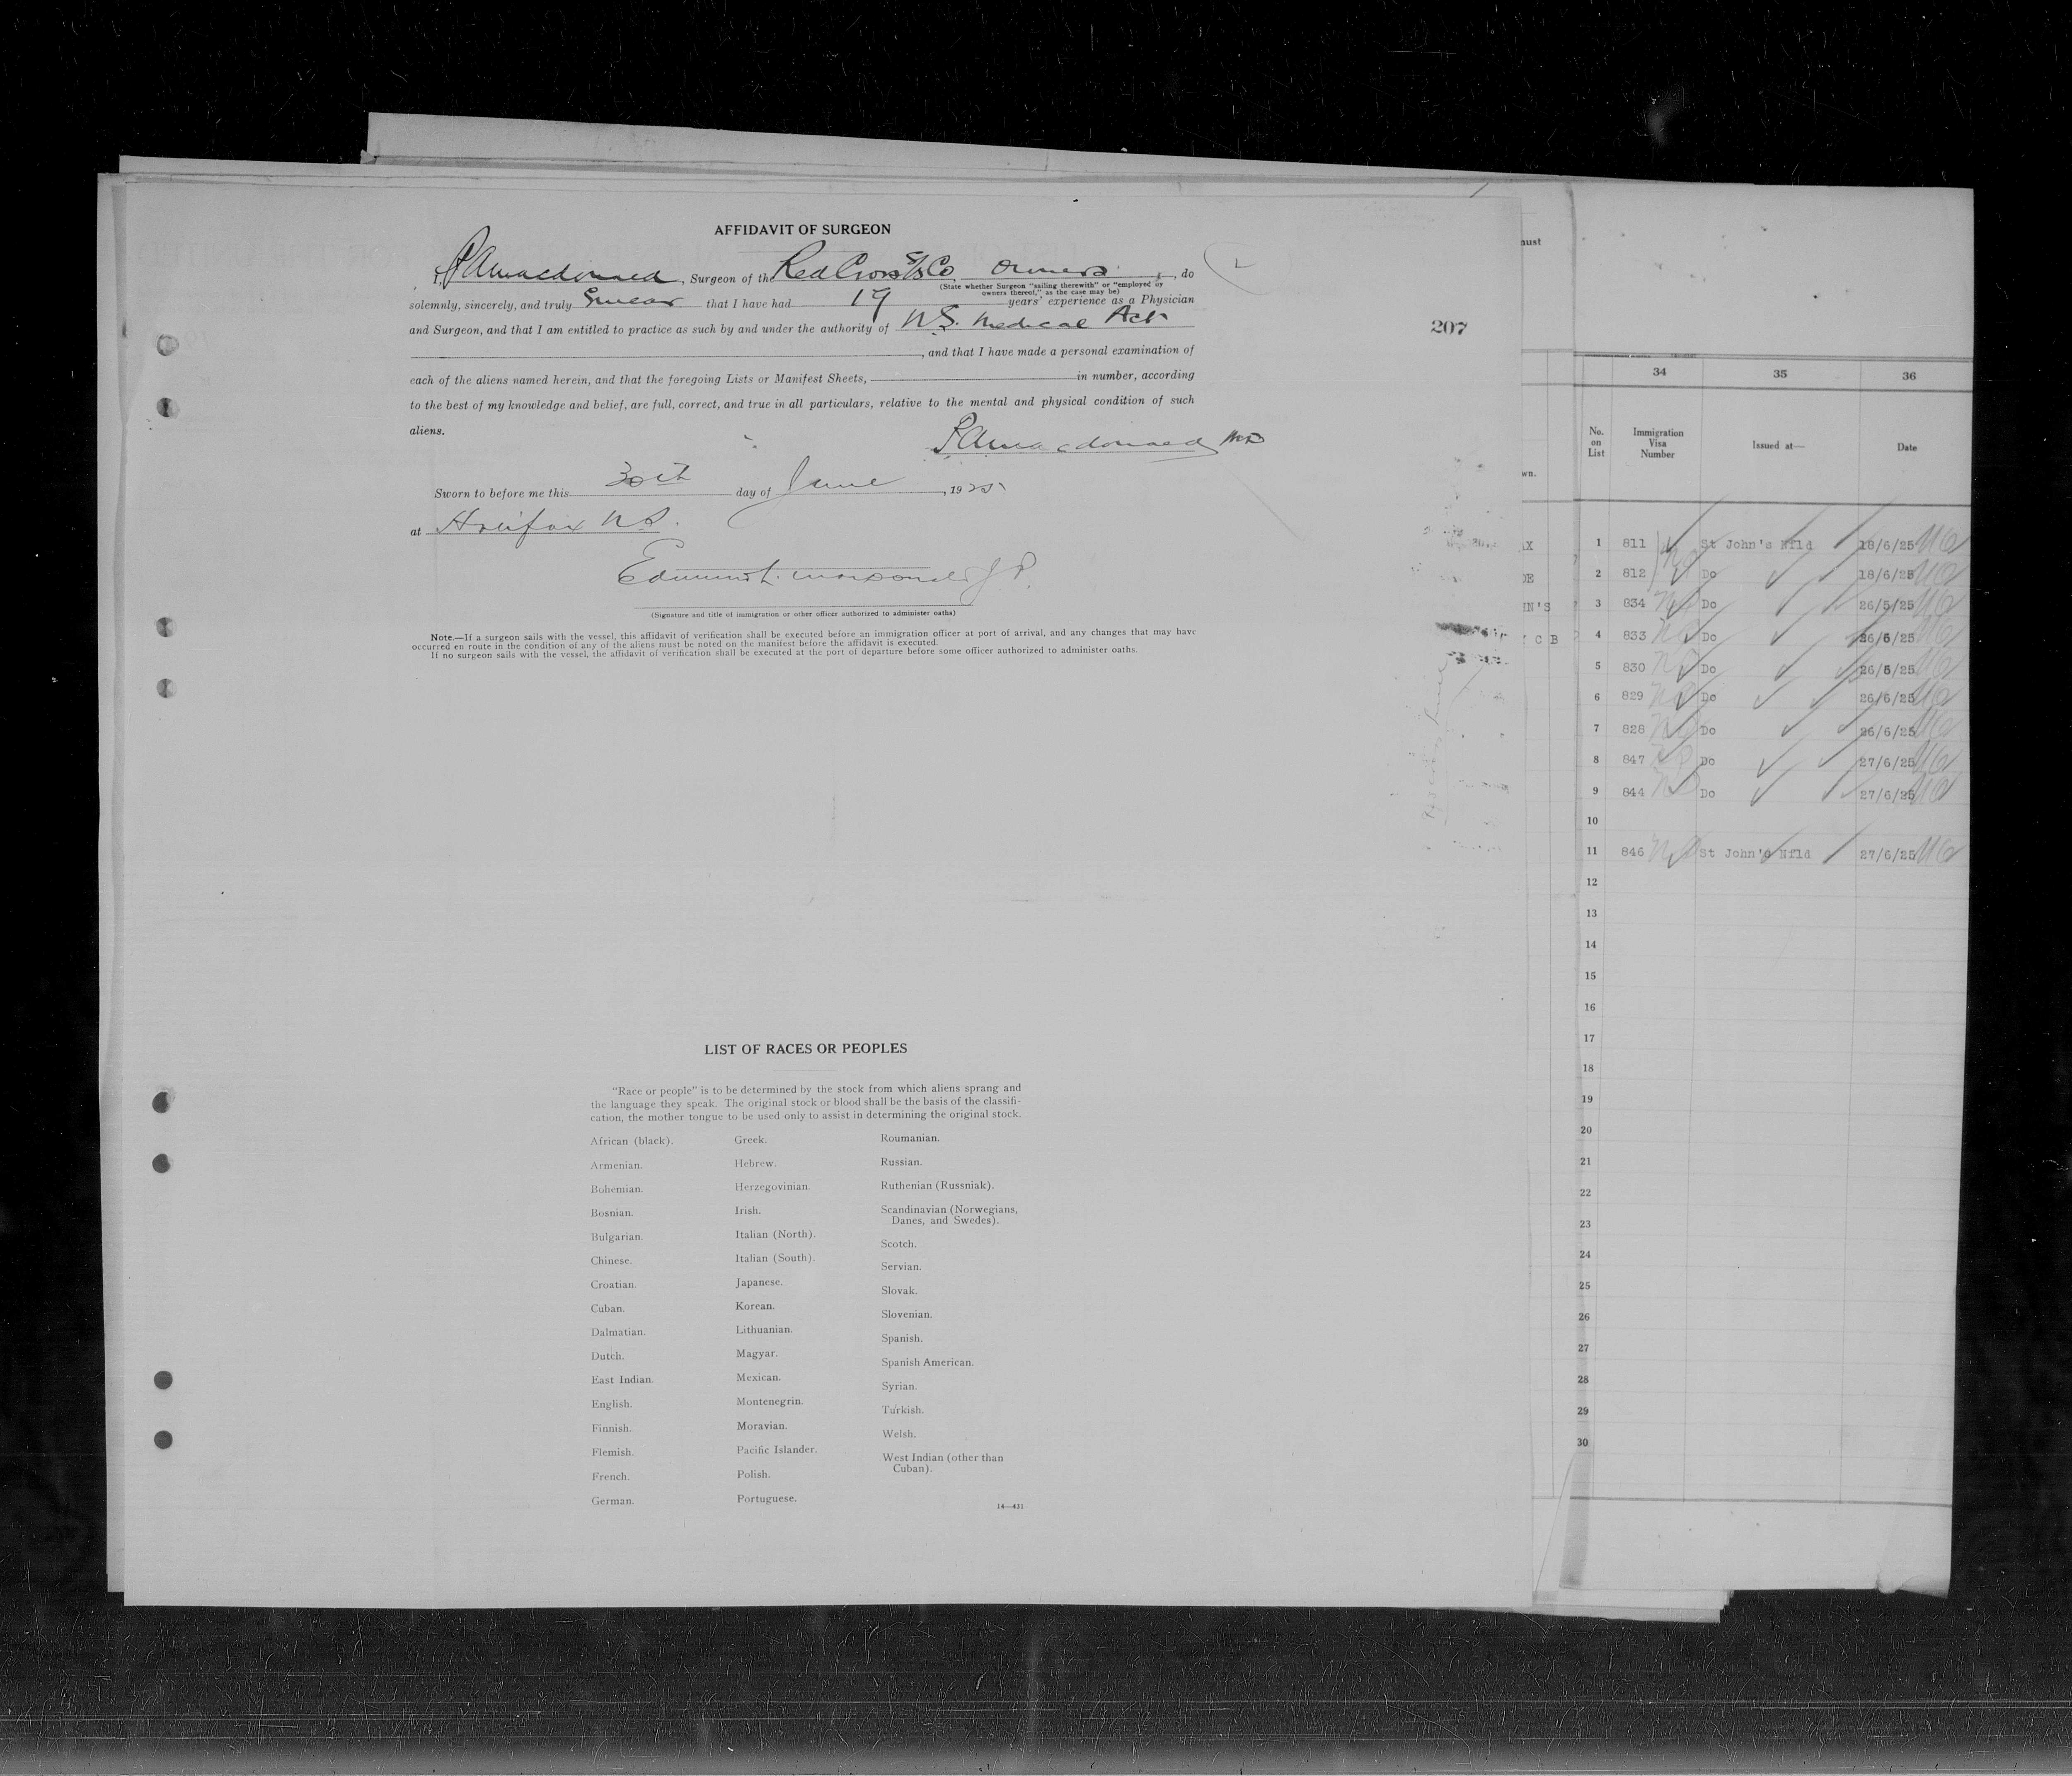 AFFIDAVIT OF SURGEON
I, P A Macdonald, Surgeon of the Red Cross S/S Co owners, do
(State whether Surgeon "sailing therewith" or "employed by
owners thereof," as the case may be)
solemnly, sincerely, and truly Swear that I have had 19 years' experience as a Physician
and Surgeon, and that I am entitled to practice as such by and under the authority of N.S. Medical Act
, and that I have made a personal examination of
each of the aliens named herein, and that the foregoing Lists or Manifest Sheets, in number, according
to the best of my knowledge and belief, are full, correct, and true in all particulars, relative to the mental and physical condition of such
aliens.
P A Macdonald MD
Sworn to before me this 30th day of June, 1925
at Halifax N S.
Macdonald J P.
(Signature and title of immigration or other officer authorized to administer oaths)
Note.—If a surgeon sails with the vessel, this affidavit of verification shall be executed before an immigration officer at port of arrival, and any changes that may have
occurred en route in the condition of any of the aliens must be noted on the manifest before the affidavit is executed.
If no surgeon sails with the vessel, the affidavit of verification shall be executed at the port of departure before some officer authorized to administer oaths.
207
LIST OF RACES OR PEOPLES
"Race or people" is to be determined by the stock from which aliens sprang and
the language they speak. The original stock or blood shall be the basis of the classifi-
cation, the mother tongue to be used only to assist in determining the original stock.
African (black).
Armenian.
Bohemian.
Bosnian.
Bulgarian.
Chinese.
Croatian.
Cuban.
Dalmatian.
Dutch.
East Indian.
English.
Finnish.
Flemish.
French.
German.
Greek.
Hebrew.
Herzegovinian.
Irish.
Italian (North).
Italian (South).
Japanese.
Korean.
Lithuanian.
Magyar.
Mexican.
Montenegrin.
Moravian.
Pacific Islander.
Polish.
Portuguese.
Roumanian.
Russian.
Ruthenian (Russniak).
Scandinavian (Norwegians,
Danes, and Swedes).
Scotch.
Servian.
Slovak.
Slovenian.
Spanish.
Spanish American.
Syrian.
Turkish.
Welsh.
West Indian (other than
Cuban).
14—431
ust
wn.
AX
DE
HN'S
C B
34 35 36
No.
on
List
Immigration
Visa
Number
Issued at—
Date
1 811 St John's Nfld 18/6/25
2 812 Do 18/6/25
3 834 Do 26/5/25
4 833 Do 26/6/25
5 830 Do 26/6/25
6 829 Do 26/6/25
7 828 Do 26/6/25
8 847 Do 27/6/25
9 844 Do 27/6/25
10
11 846 St John's Nfld 27/6/25
12
13
14
15
16
17
18
19
20
21
22
23
24
25
26
27
28
29
30